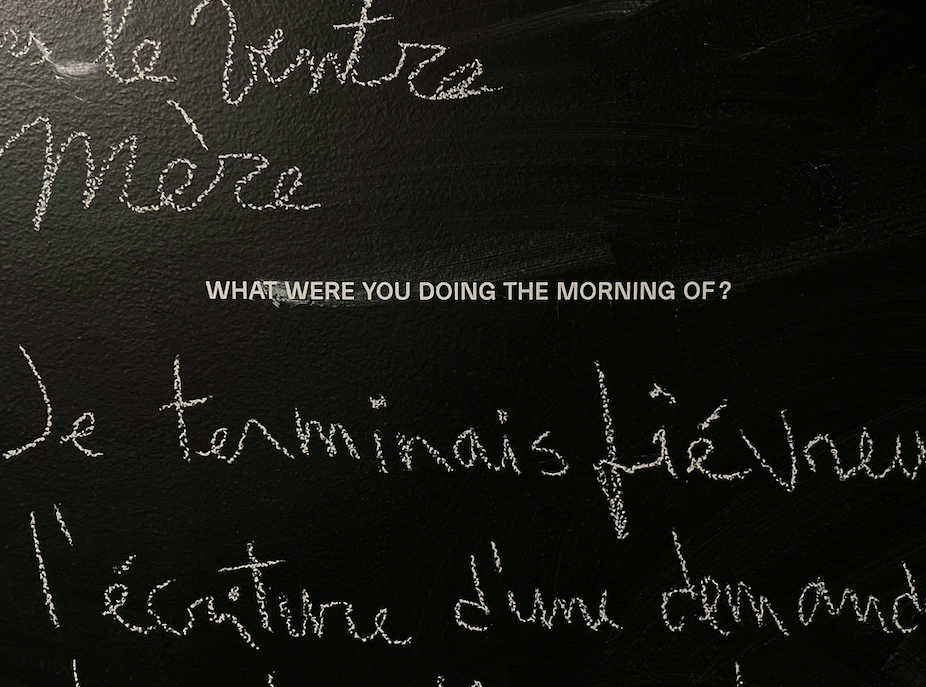 le ventre
Mère
WHAT WERE YOU DOING THE MORNING OF?
Je terminais
l'écriture d'une